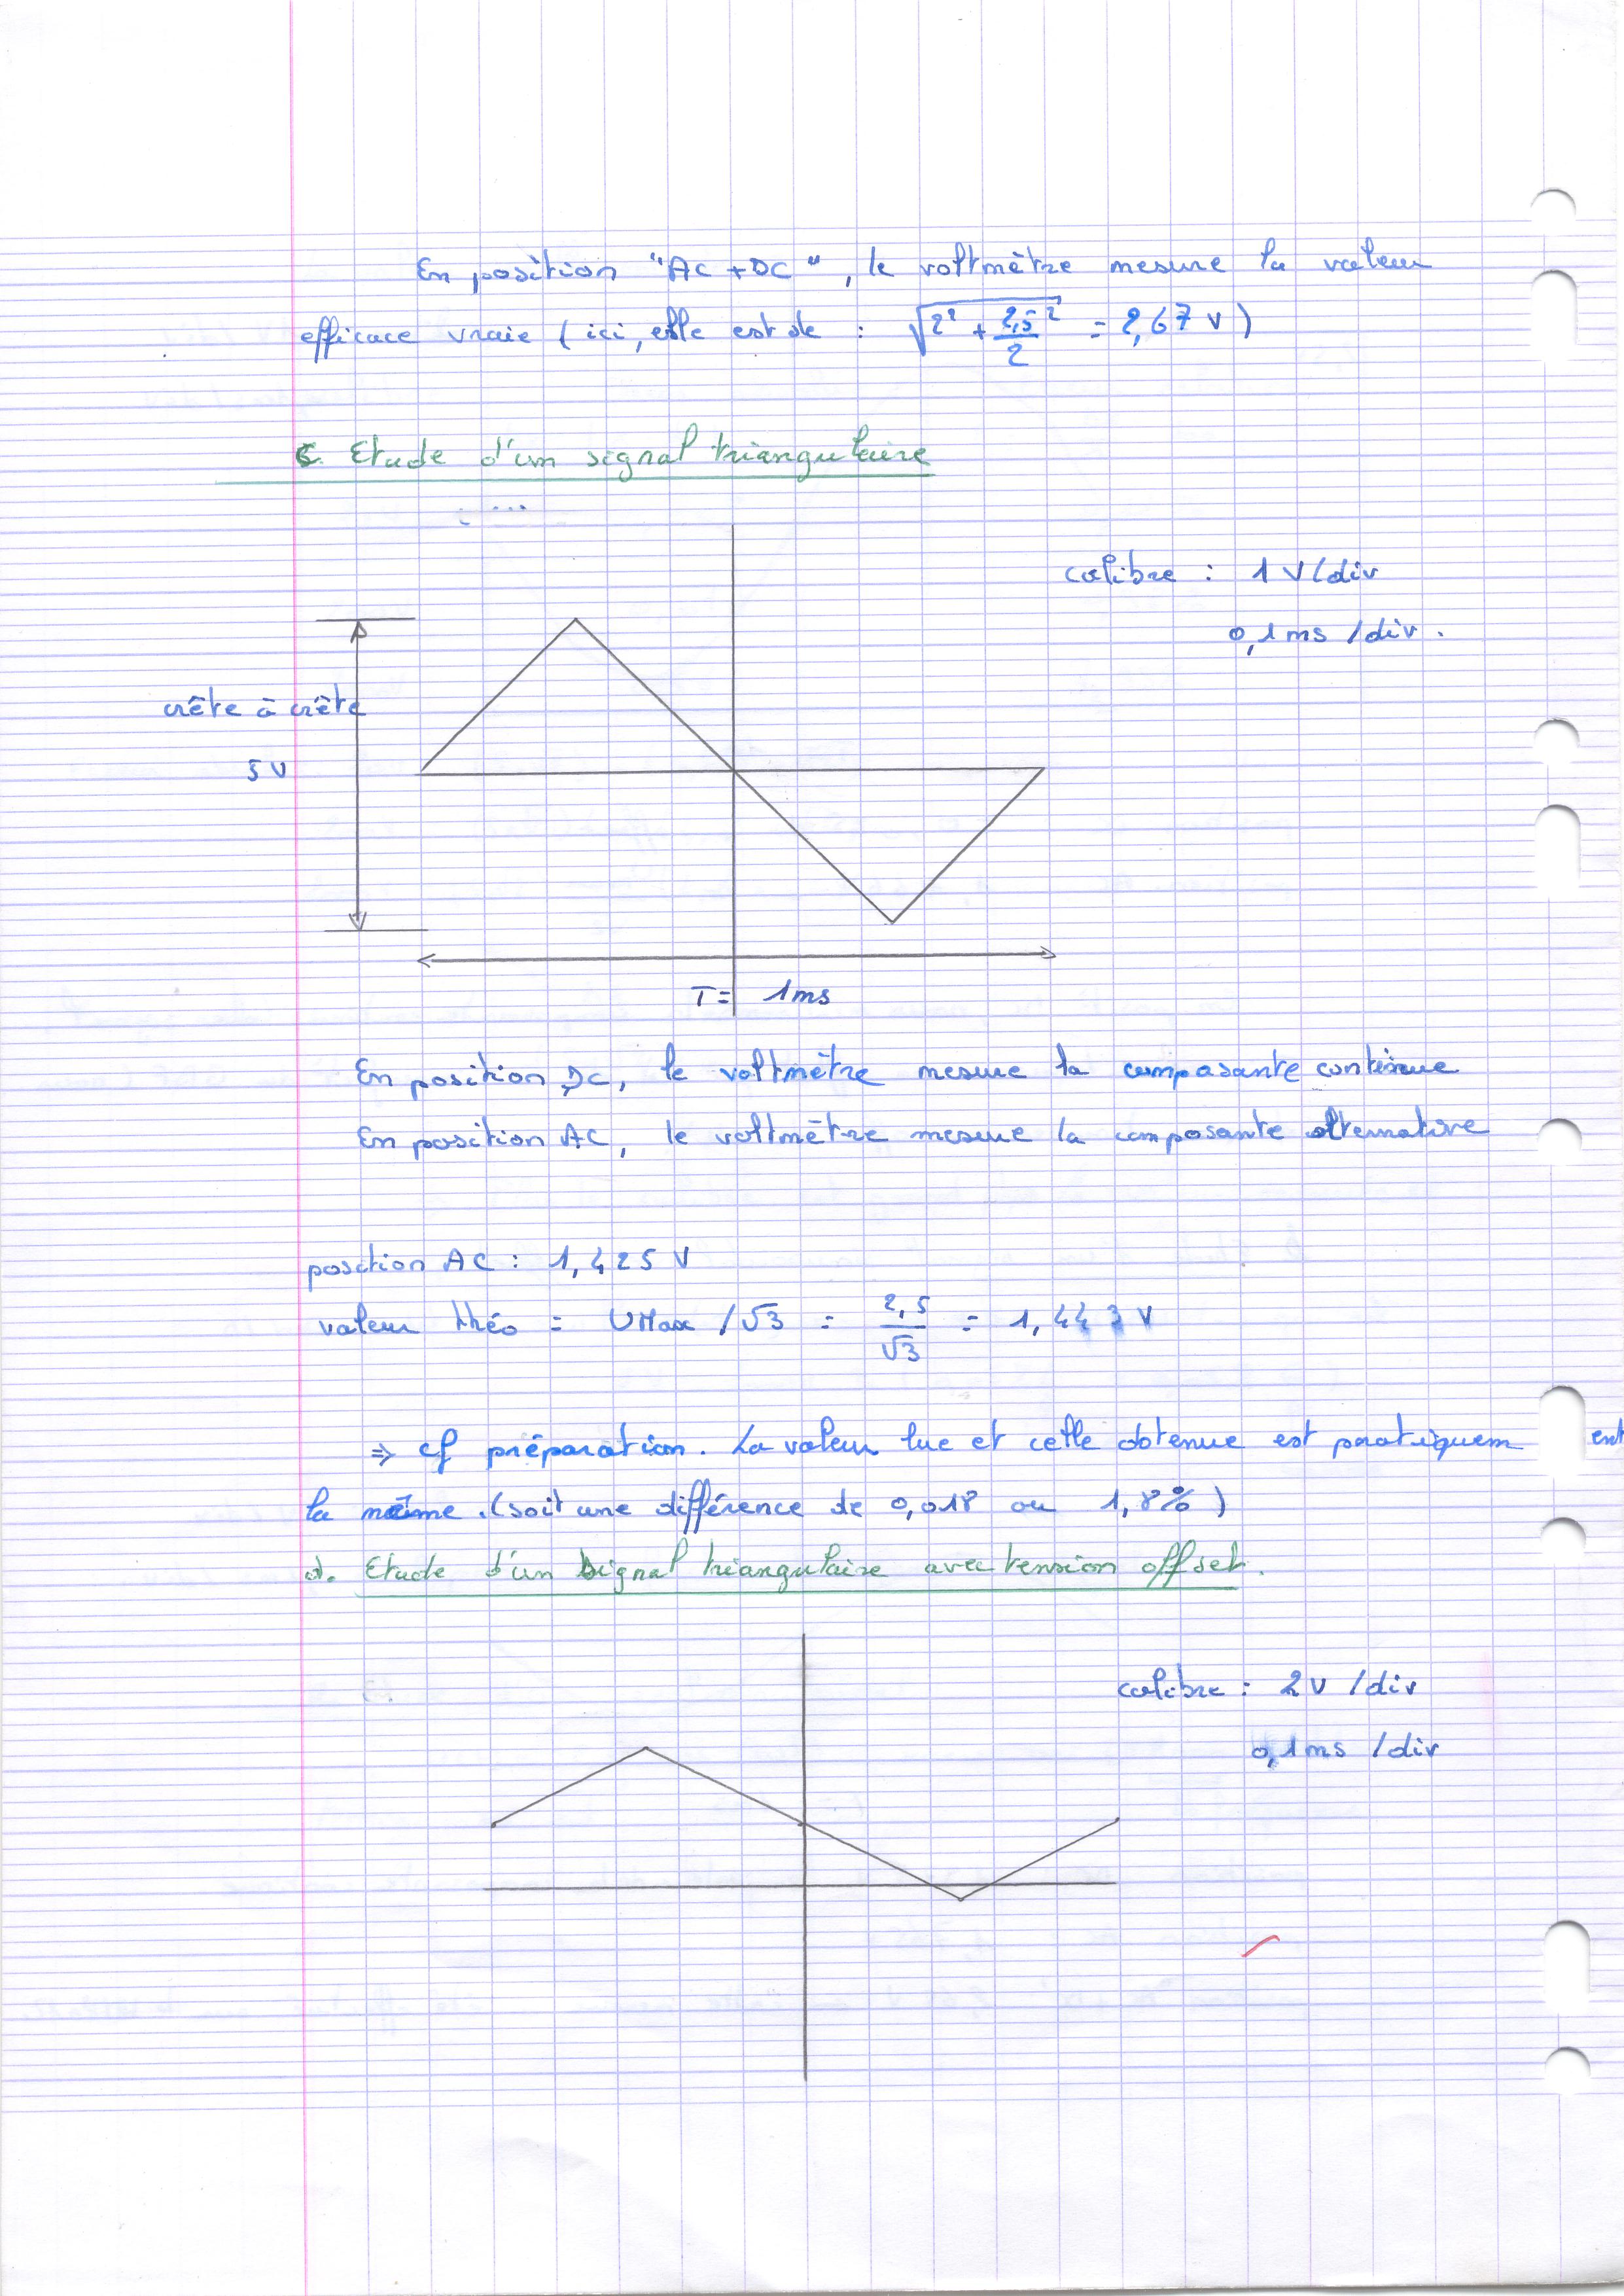 En position "AC + DC", le voltmètre mesure la valeur
efficace vraie (ici, elle est de : √(2² + 2,5²/2) = 2,67 V)
c. Etude d'un signal triangulaire
calibre : 1 V/div
0,1 ms /div.
crête à crête
5 V
T = 1 ms
En position DC, le voltmètre mesure la composante continue
En position AC, le voltmètre mesure la composante alternative
position AC : 1,425 V
valeur théo = UMax /√3 = 2,5/√3 = 1,443 V
⇒ cf préparation. La valeur lue et celle obtenue est pratiquement
la même. (soit une différence de 0,018 ou 1,8%)
d. Etude d'un signal triangulaire avec tension offset.
calibre : 2 V /div
0,1 ms /div